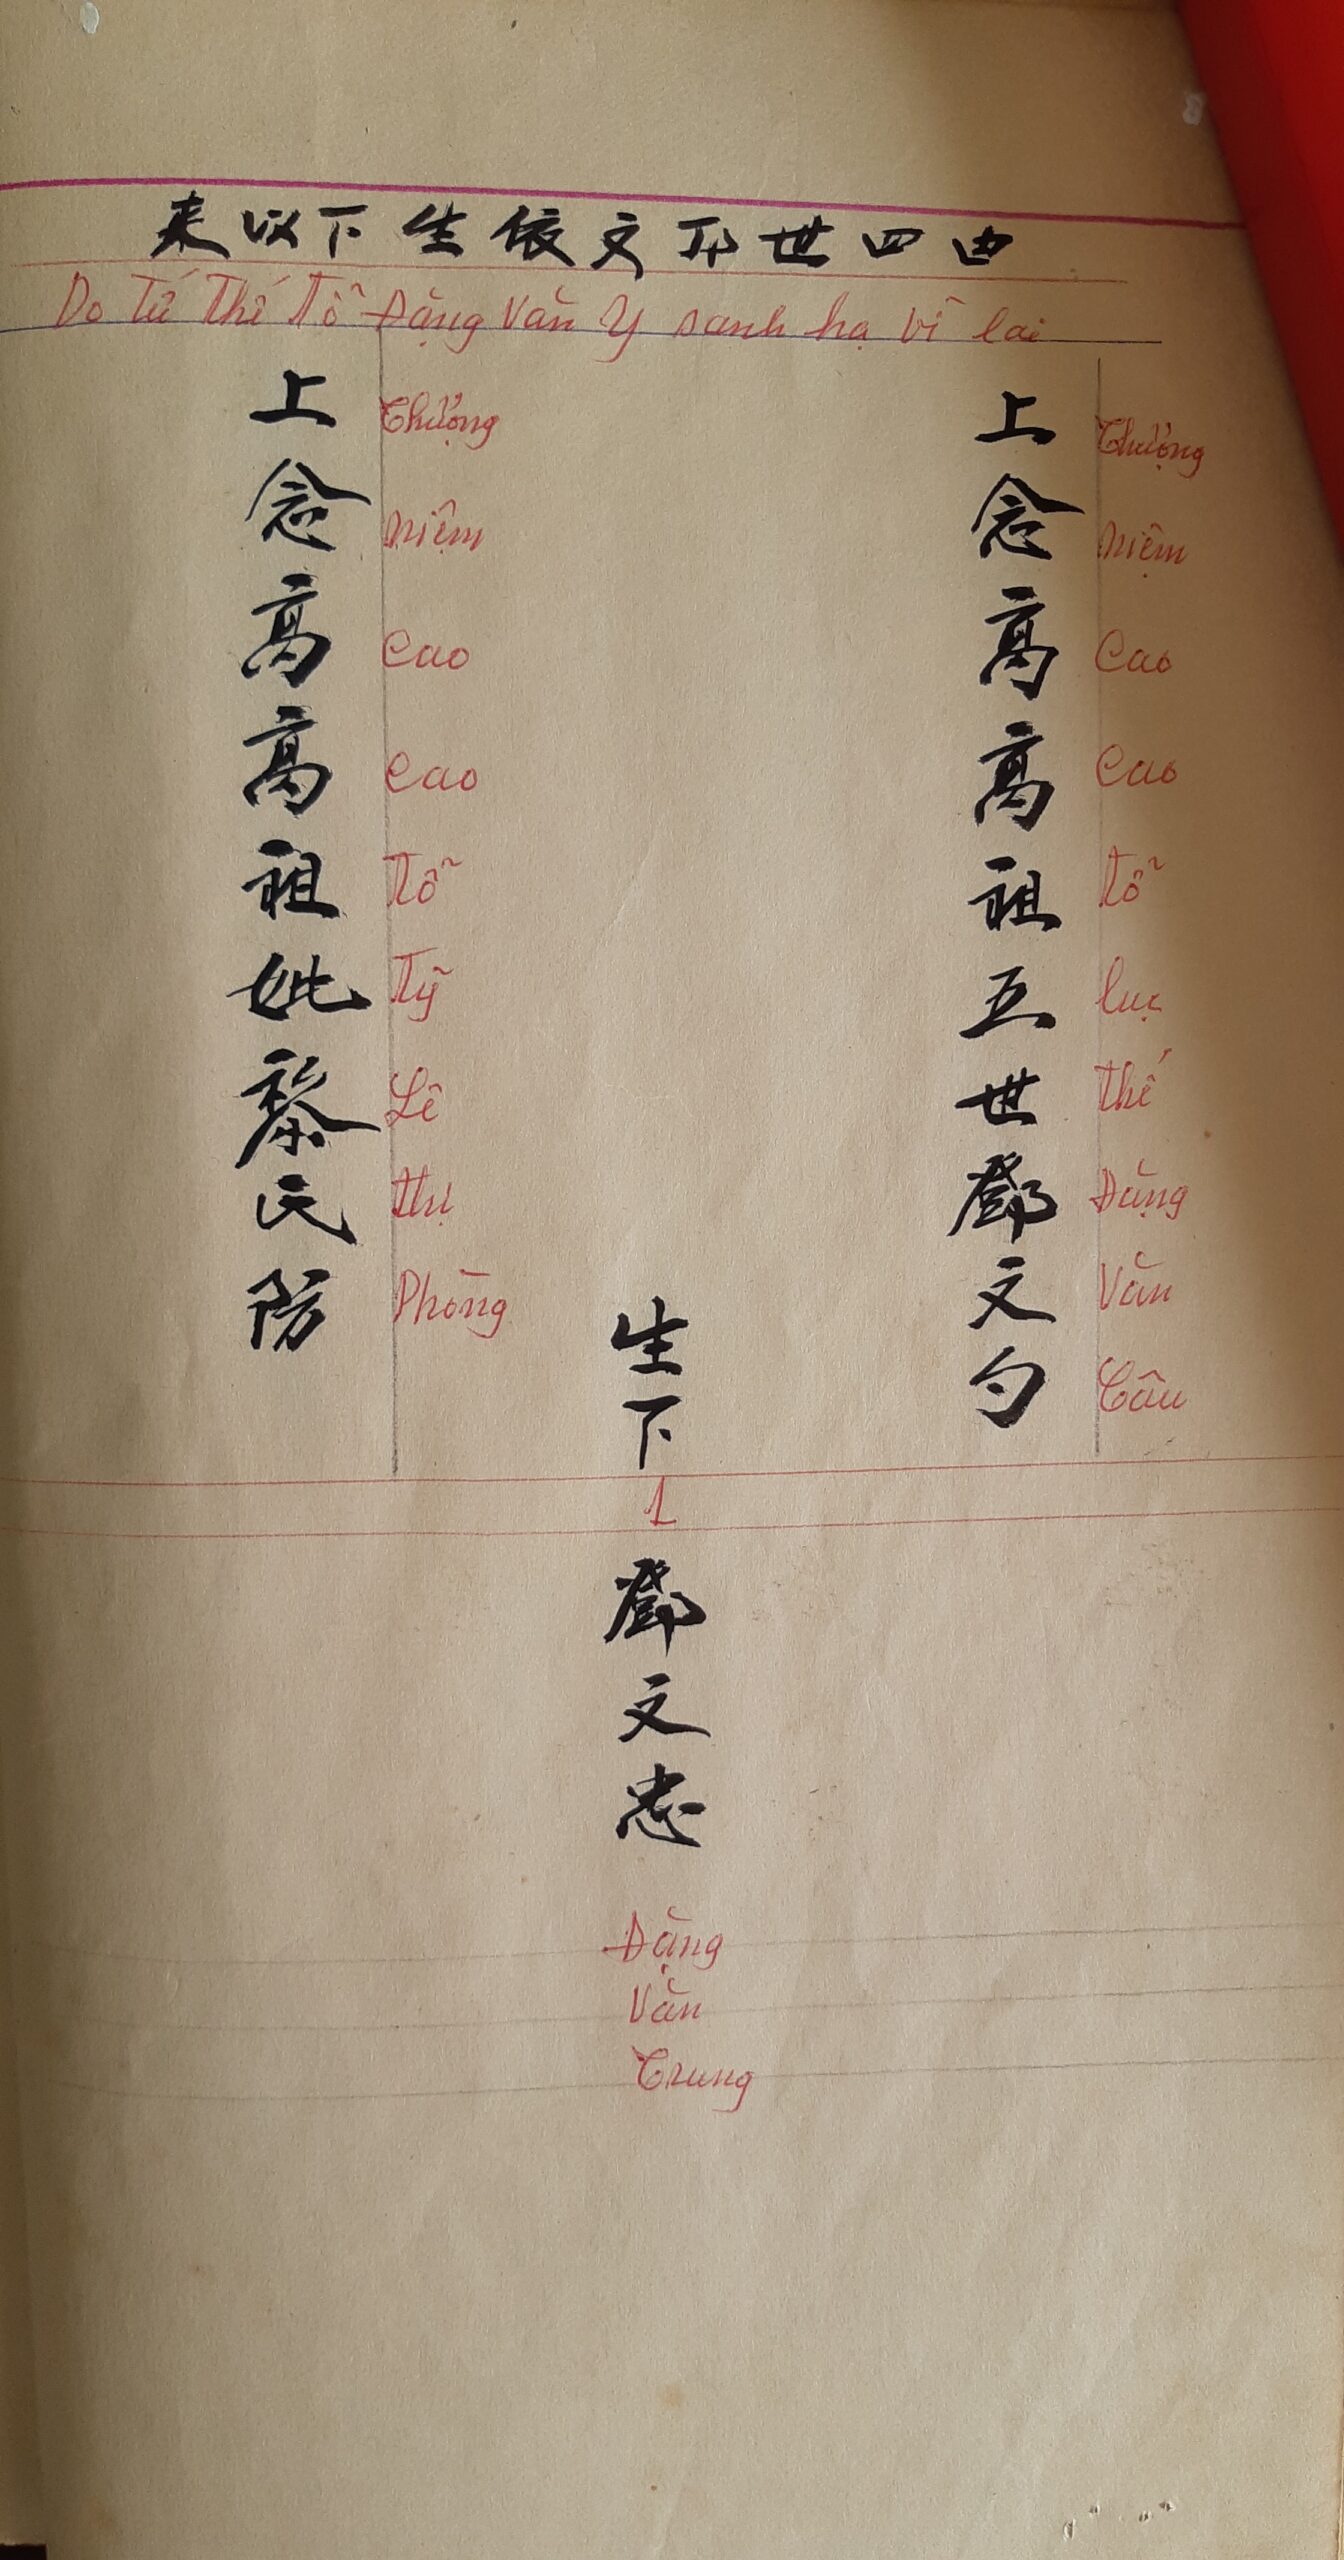 由四世邓文依生下以来
Do Tứ Thế Tỗ Đặng Văn Y sanh hạ vĩ lai
上念高高祖五世鄧文勺
Thượng
niệm
Cao
Cao
tỗ
lục
thế
Đặng
Văn
Câu
生下
上念高高祖妣黎氏防
Thượng
niệm
Cao
Cao
Tỗ
Tỷ
Lê
thị
Phòng
1
鄧文忠
Đặng
Văn
Trung